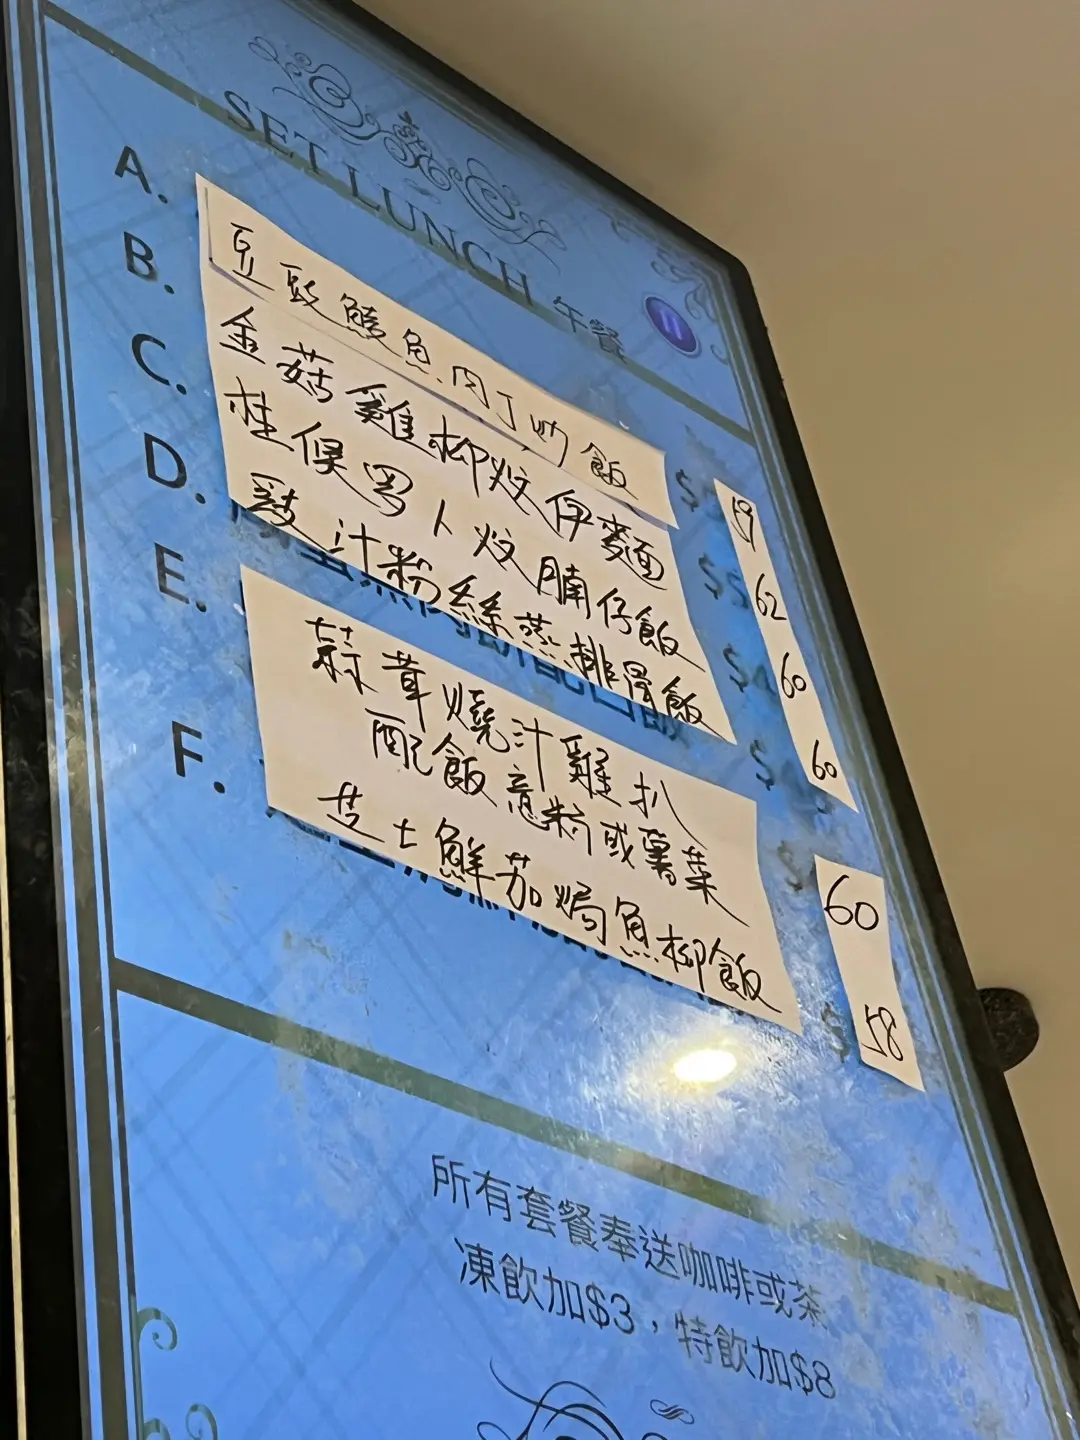 SET LUNCH 午餐
A. 豆豉鯪魚肉丁炒飯 $59
B. 金菇雞柳炆伊麵 $62
C. 柱侯羅卜炆腩仔飯 $60
D. 豉汁粉絲蒸排骨飯 $60
E. 蒜茸燒汁雞扒
配飯意粉或薯菜 $60
F. 芝士鮮茄焗魚柳飯 $58
所有套餐奉送咖啡或茶
凍飲加$3，特飲加$8